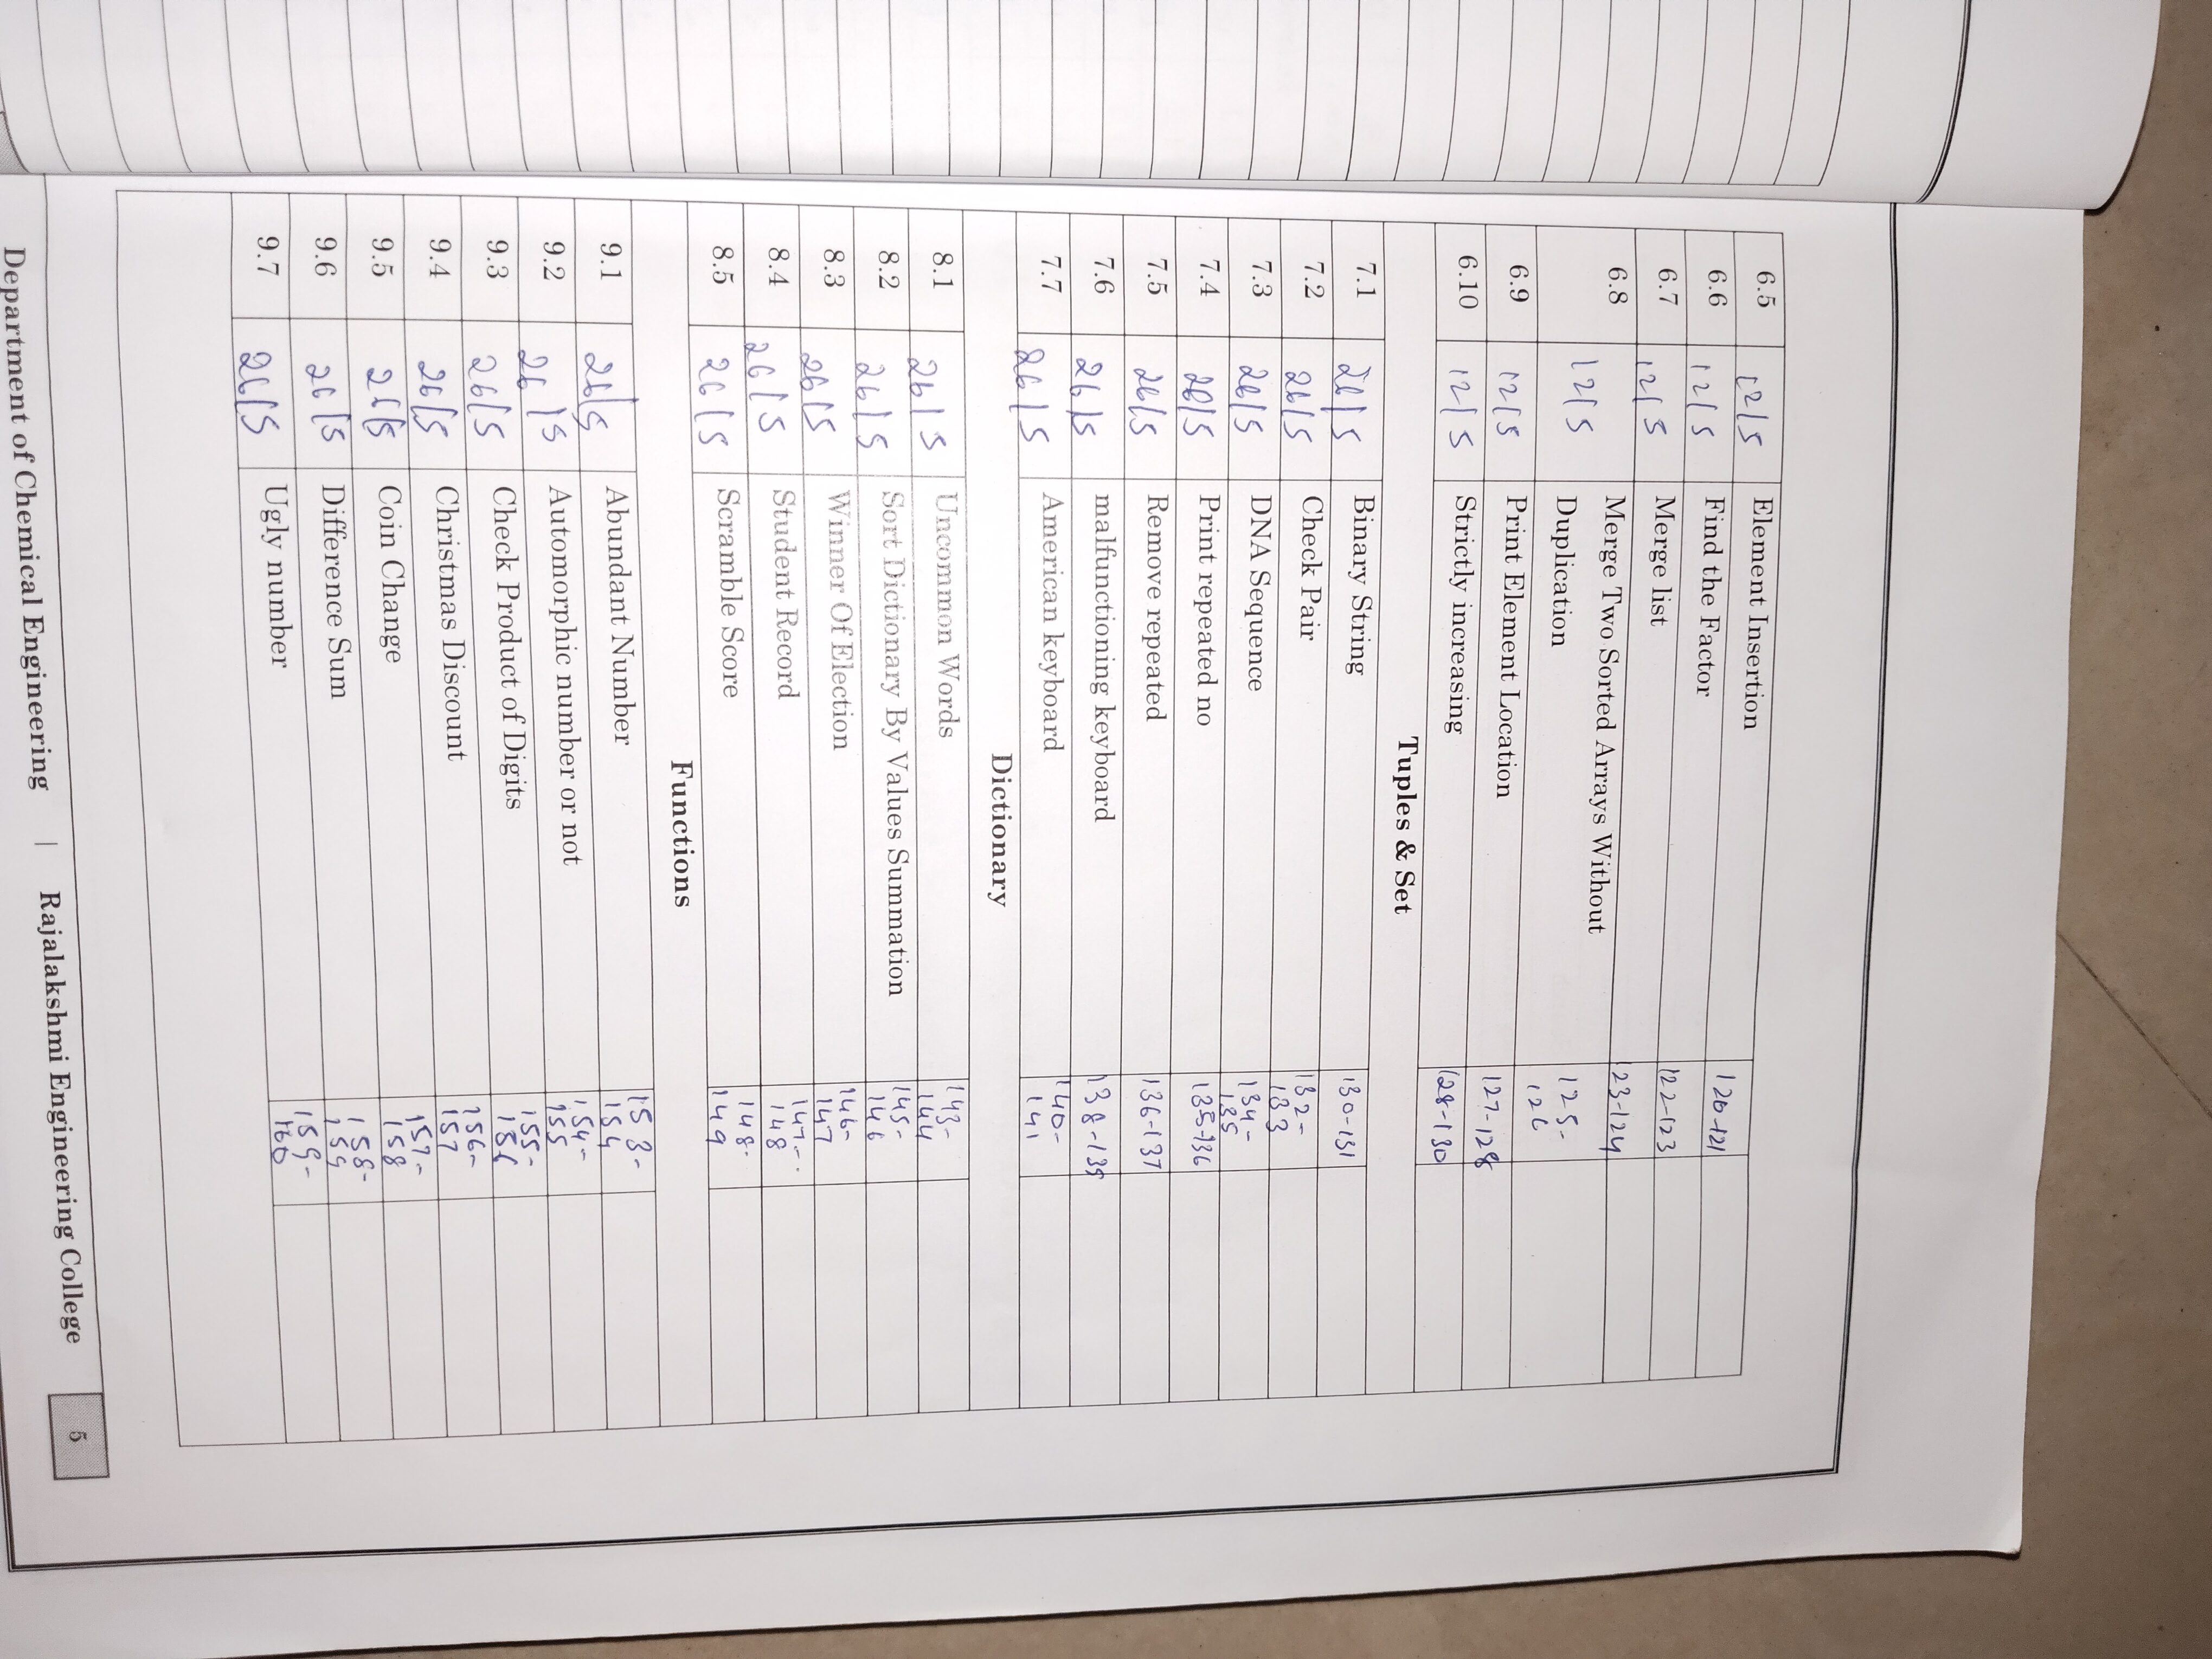 6.5 12/5 Element Insertion 120-121
6.6 12/5 Find the Factor 122-123
6.7 12/5 Merge list 123-124
6.8 12/5 Merge Two Sorted Arrays Without 125-
Duplication 126
6.9 12/5 Print Element Location 127-128
6.10 12/5 Strictly increasing 128-130
Tuples & Set
7.1 26/5 Binary String 130-131
7.2 26/5 Check Pair 132-
133
7.3 26/5 DNA Sequence 134-
135
7.4 26/5 Print repeated no 135-136
7.5 26/5 Remove repeated 136-137
7.6 26/5 malfunctioning keyboard 138-139
7.7 26/5 American keyboard 140-
141
Dictionary
8.1 26/5 Uncommon Words 143-
144
8.2 26/5 Sort Dictionary By Values Summation 145-
146
8.3 26/5 Winner Of Election 146-
147
8.4 26/5 Student Record 147-
148
8.5 26/5 Scramble Score 148-
149
Functions
9.1 26/5 Abundant Number 153-
154
9.2 26/5 Automorphic number or not 154-
155
9.3 26/5 Check Product of Digits 155-
156
9.4 26/5 Christmas Discount 156-
157
9.5 26/5 Coin Change 157-
158
9.6 26/5 Difference Sum 158-
159
9.7 26/5 Ugly number 159-
160
Department of Chemical Engineering | Rajalakshmi Engineering College 5